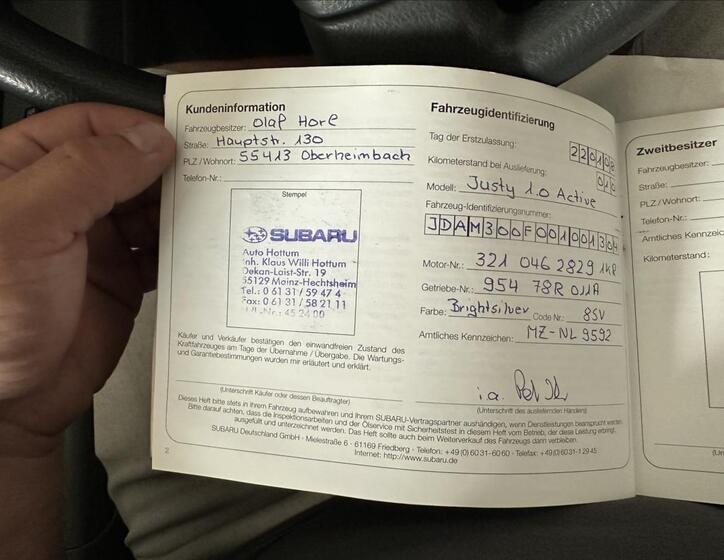 Kundeninformation
Fahrzeugbesitzer: Olaf Horl
Straße: Hauptstr. 130
PLZ / Wohnort: 55413 Oberheimbach
Telefon-Nr.:
Stempel
SUBARU
Auto Hottum
Inh. Klaus Willi Hottum
Dekan-Laist-Str. 19
55129 Mainz-Hechtsheim
Tel.: 0 61 31 / 59 47 4
Fax: 0 61 31 / 58 21 11
Nr.: 45 24 00
Käufer und Verkäufer bestätigen den einwandfreien Zustand des
Kraftfahrzeuges am Tage der Übernahme / Übergabe. Die Wartungs-
und Garantiebestimmungen wurden mir erläutert und erklärt.
(Unterschrift Käufer oder dessen Beauftragter)
Fahrzeugidentifizierung
Tag der Erstzulassung: 220108
Kilometerstand bei Auslieferung: 010
Modell: Justy 1.0 Active
Fahrzeug-Identifizierungsnummer:
JDAM300F001001304
Motor-Nr.: 321 046 2829 1KR
Getriebe-Nr.: 954 78R 011A
Farbe: Brightsilver Code Nr.: 8SV
Amtliches Kennzeichen: MZ-NL 9592
i.a.
(Unterschrift des ausliefernden Händlers)
Dieses Heft bitte stets in Ihrem Fahrzeug aufbewahren und Ihrem SUBARU-Vertragspartner aushändigen, wenn Dienstleistungen beansprucht werden.
Bitte darauf achten, dass die Inspektionsarbeiten und der Ölservice mit Sicherheitstest in diesem Heft vom Betrieb, der diese Leistung erbringt,
ausgefüllt und unterzeichnet werden. Das Heft sollte auch beim Weiterverkauf des Fahrzeugs dann verbleiben.
SUBARU Deutschland GmbH · Mielestraße 6 · 61169 Friedberg · Telefon: +49 (0) 60 31- 60 60 · Telefax: +49 (0) 60 31-1 29 45
Internet: http://www.subaru.de
2
Zweitbesitzer
Fahrzeugbesitzer:
Straße:
PLZ / Wohnort:
Telefon-Nr.:
Amtliches Kennzeic
Kilometerstand: